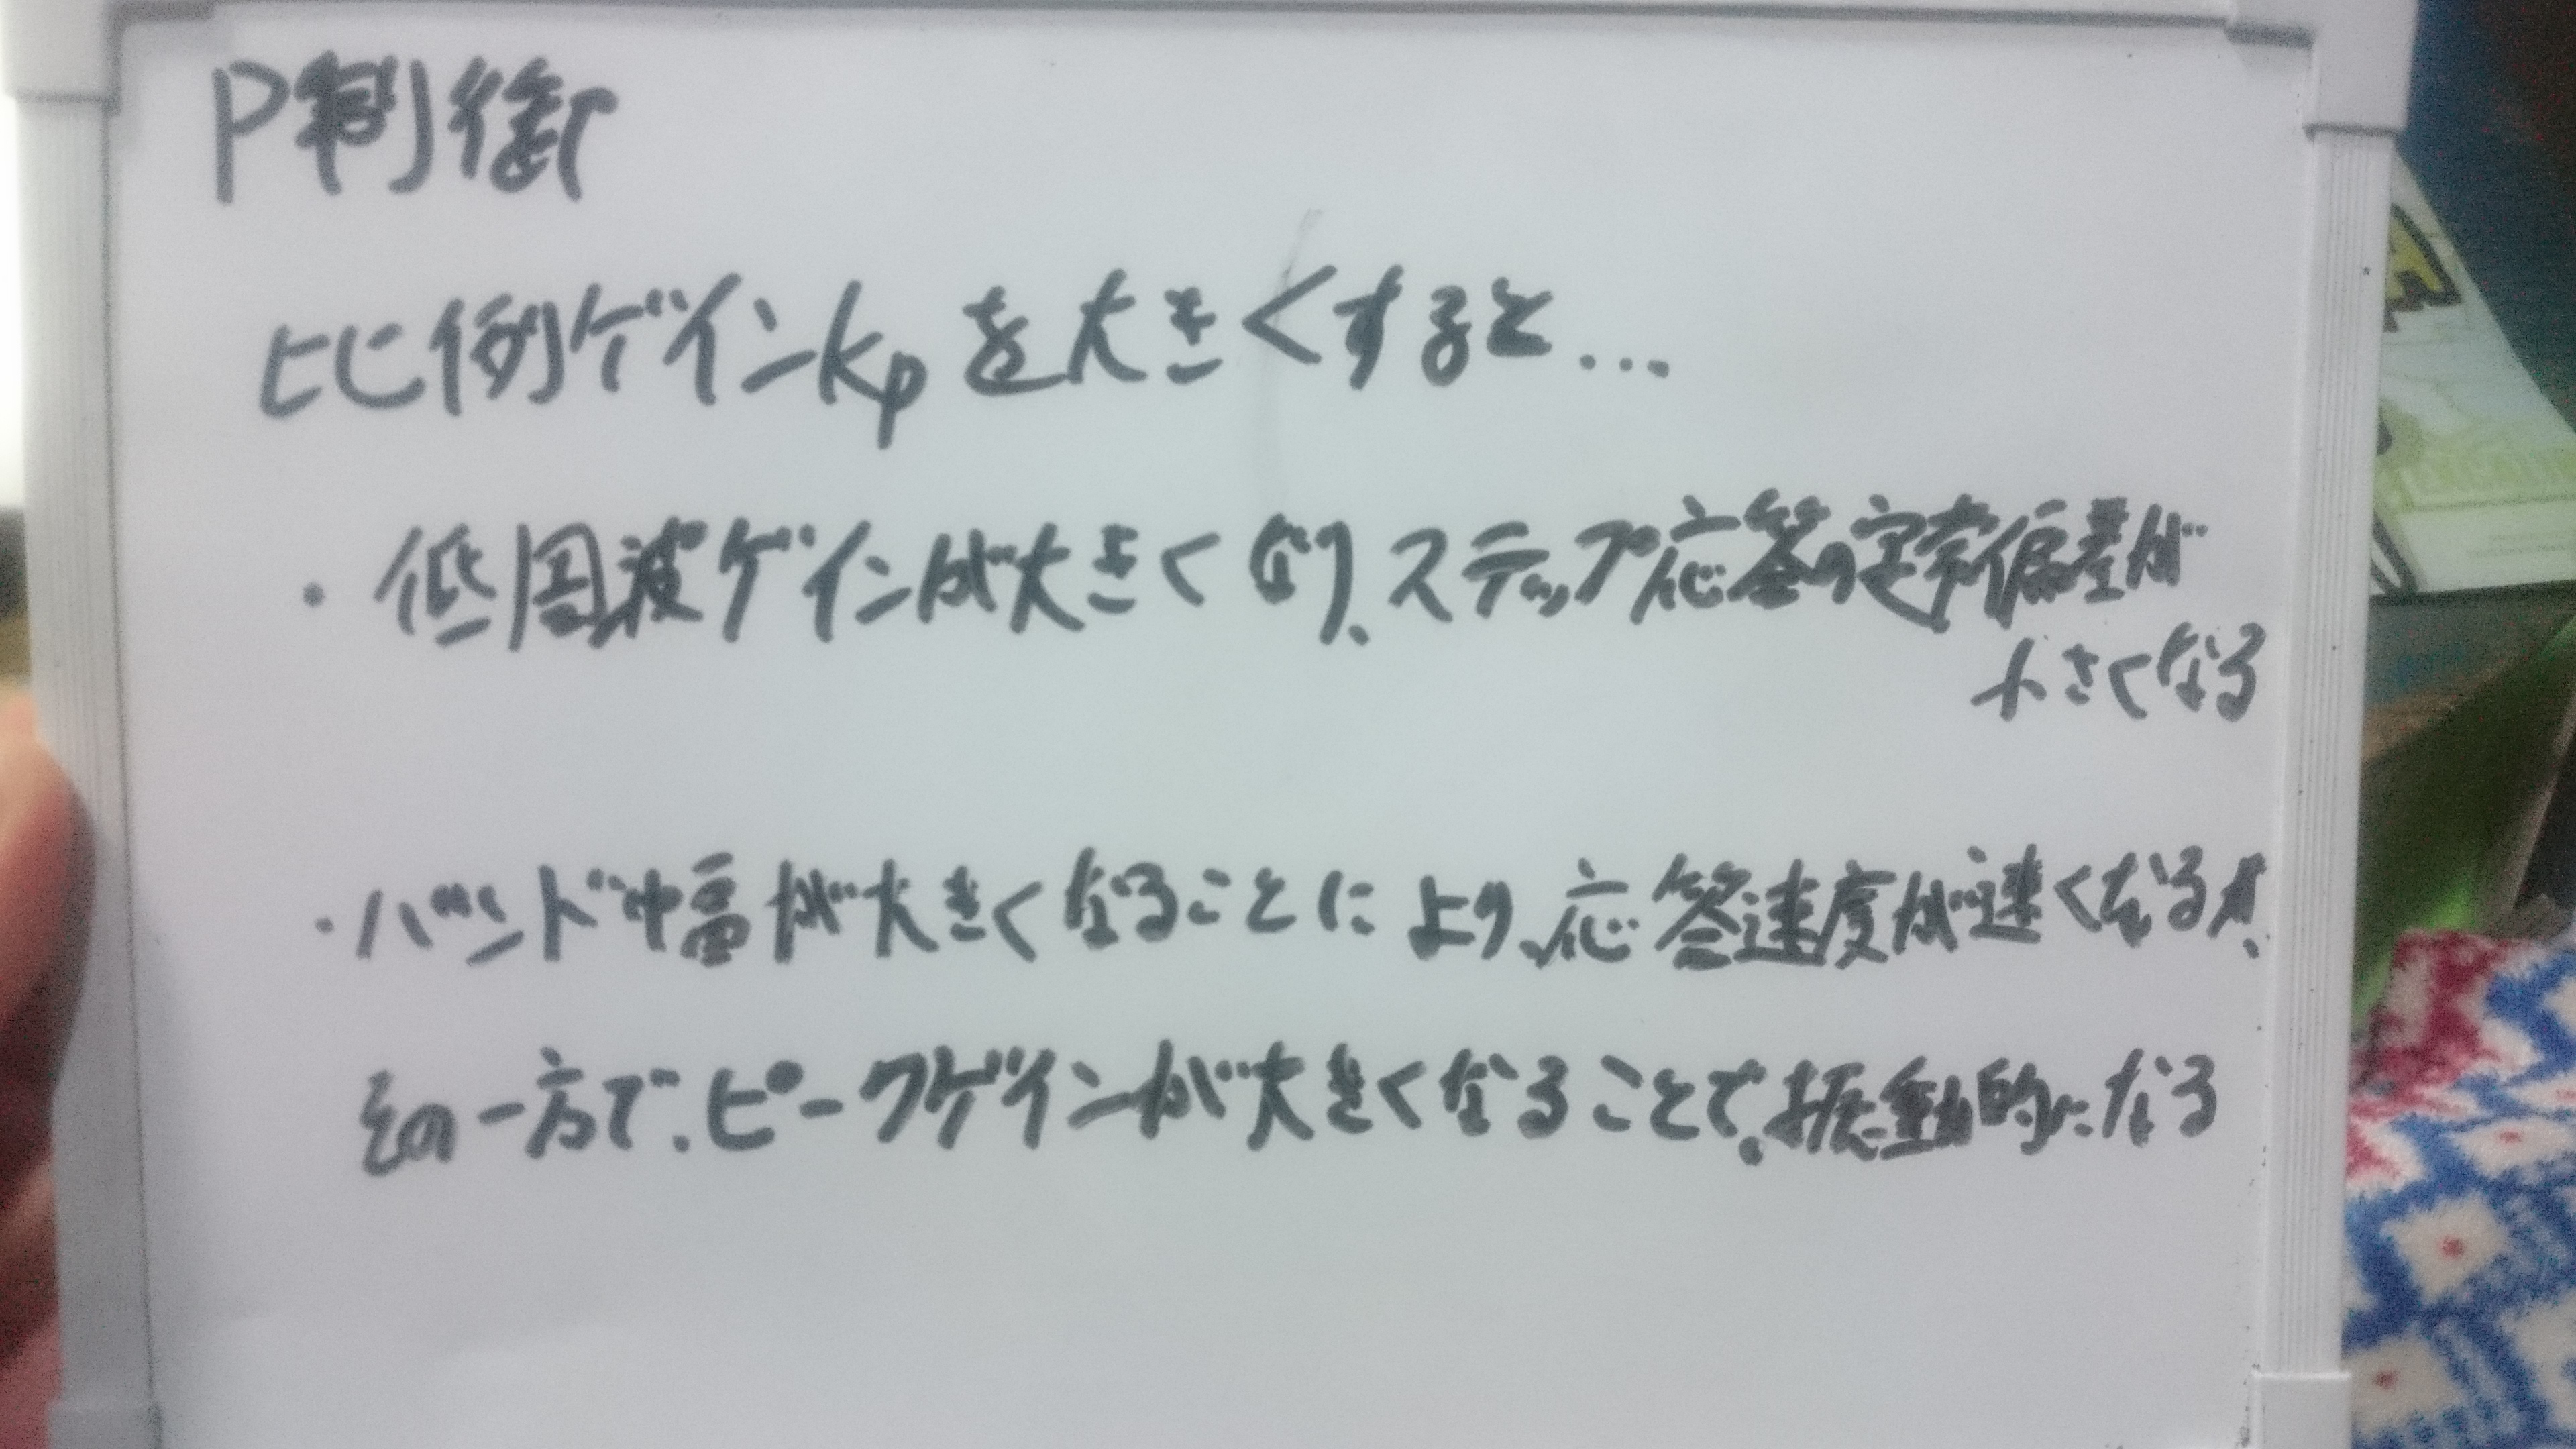 P制御
比例ゲインkpを大きくすると...
・低周波ゲインが大きくなり、ステップ応答の定常偏差が
小さくなる
・バンド幅が大きくなることにより、応答速度が速くなるが、
その一方で、ピークゲインが大きくなることで、振動的になる